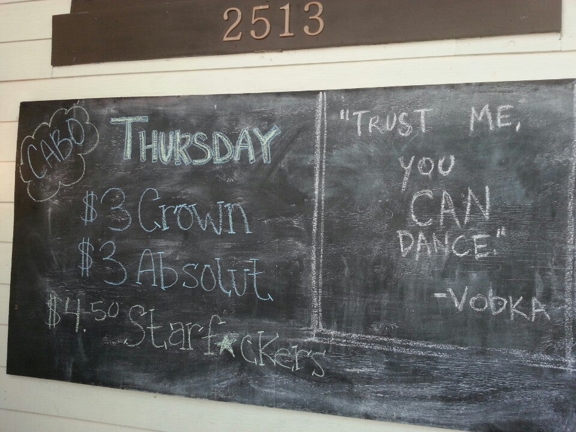 2513
CABO
THURSDAY
$3 Crown
$3 Absolut
$4.50 Starf★ckers
"TRUST ME,
YOU
CAN
DANCE."
-VODKA